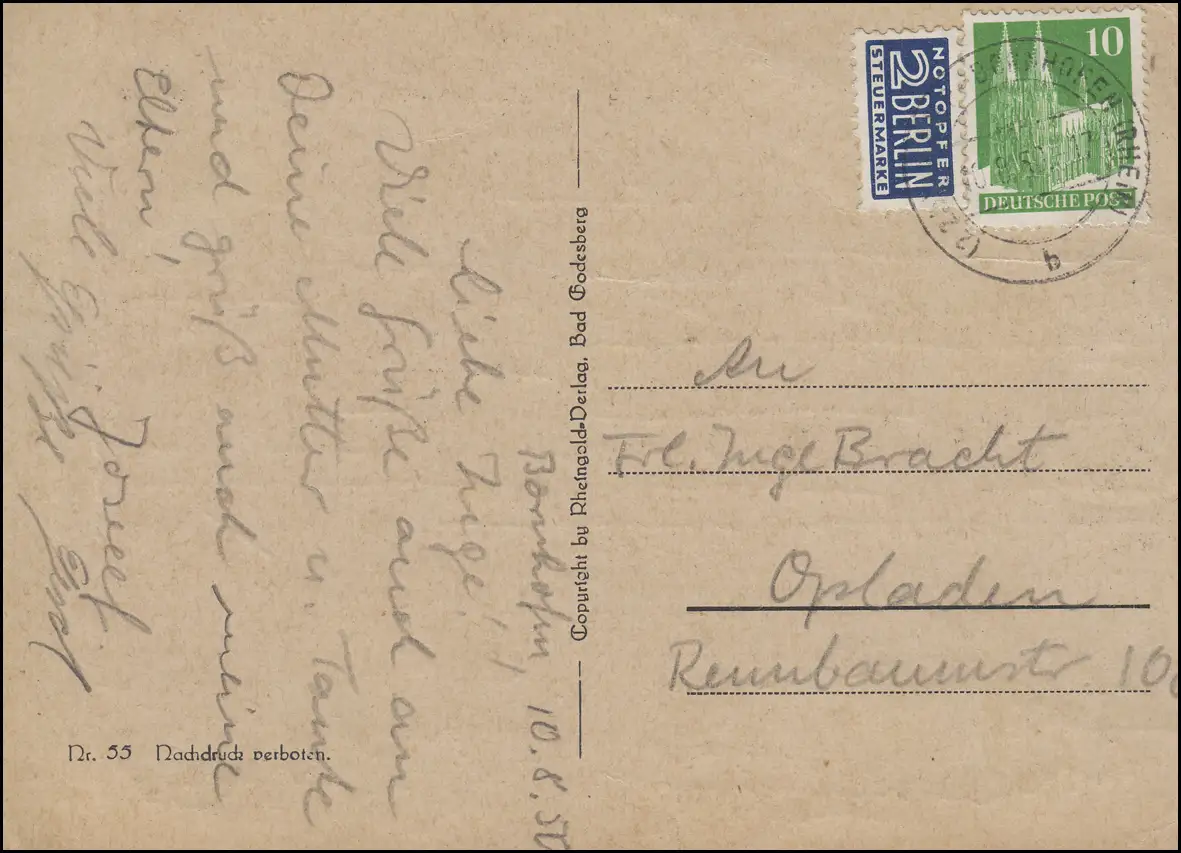 Bornhofen, 10.8.50
Liebe Inge!
Viele Grüße auch an
Deine Mutter u. Tante
und grüß auch meine
Eltern,
Josef
Viele Grüße Ernst
Copyright by Rheingold-Verlag, Bad Godesberg
Nr. 55 Nachdruck verboten.
NOTOPFER
2 BERLIN
STEUERMARKE
10
DEUTSCHE POST
BORNHOFEN (RHEIN)
b
An
Frl. Inge Bracht
Opladen
Rennbaumstr 10